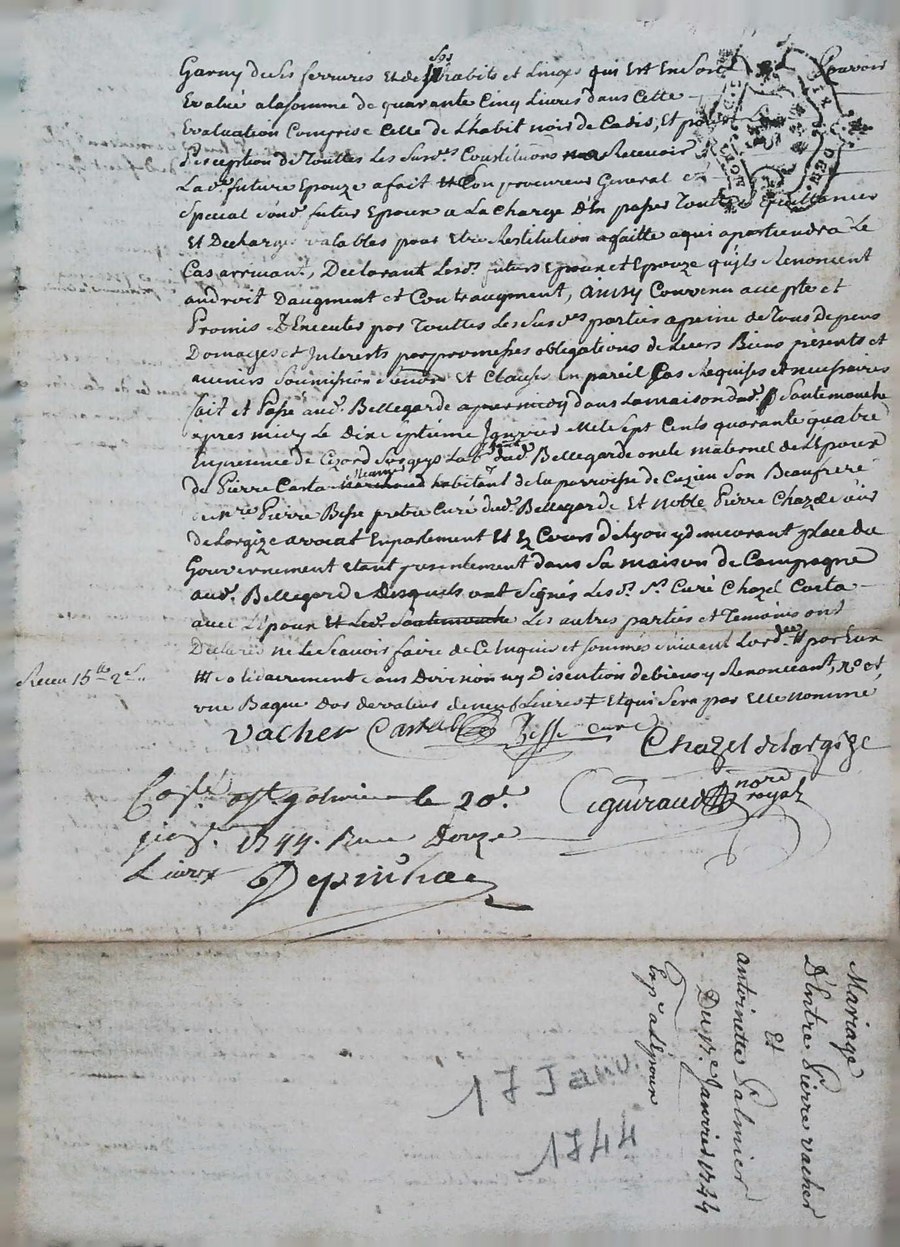 Garny de ses ferrures et de ses habits et linges qui est en sont pouvoir
Evalué a la somme de quarante Cinq Livres dans Cette
Evaluation Comprise Celle de L'habit noir de Cadis, Et pour
perception de Touttes Les susd.es Constitutions Recevoir
La d.e future Epouze a fait son procureur General et
Special sond. futur Epoux a La Charge d'En passer Touttes quittances
Et Decharges valables pour etre Restitution a faitte a qui apartiendra Le
Cas arrivant, Declarant Lesd. futurs Epoux et Epouze qu'ils Renoncent
au droit Daugment et Contraugment, ainsy Convenu accepté et
Promis D'Executer par Touttes Les susd.es parties a peine de Tous Depens
Domages et Interests par promesses obligations de Leurs Biens presents et
avenirs soumission Renon. Et Clauses En pareil Cas Requises et necessaires
fait et Passé aud. Bellegarde apres midy dans La maison dud. Sautemouche
apres midy Le Dix septieme Janvier Mil sept Cents quarante quatre
En presence de dud. Bellegarde oncle maternel de L'Epoux
de Pierre Carta habitant de La parroisse de Cuzieu son Beaufrere
de m.re Pierre Besse prebtre Curé dud. Bellegarde Et noble Pierre Chazel
de Largize avocat En parlement Et Ez Cours de Lyon y demeurant place du
Gouvernement etant presentement dans sa maison de Campagne
aud. Bellegarde Desquels ont signés Les d. S.r Curé Chazel Carta
avec L'Epoux Et Led. Sautemouche Les autres parties et Temoins ont
Declarés ne Le sçavoir faire de ce Enquis et sommés suivant Lord.ce par Eux
solidairement sans Division ny Discution de biens y Renonceant,
une Bague d'or de valeur de neuf Livres Et qui sera par Elle nommé
Receu 15.tt 2.s
vacher Carta Besse curé
Chazel de Largize
Ciguiraud nore royal
le 20.e
1744. Receu Douze
Livres
Depinhac
Mariage
D'Entre Pierre vacher
Et
antoinette Palmier
Du 17.e Janvier 1744
Exp.e a L'Epoux
17 Janv.
1744